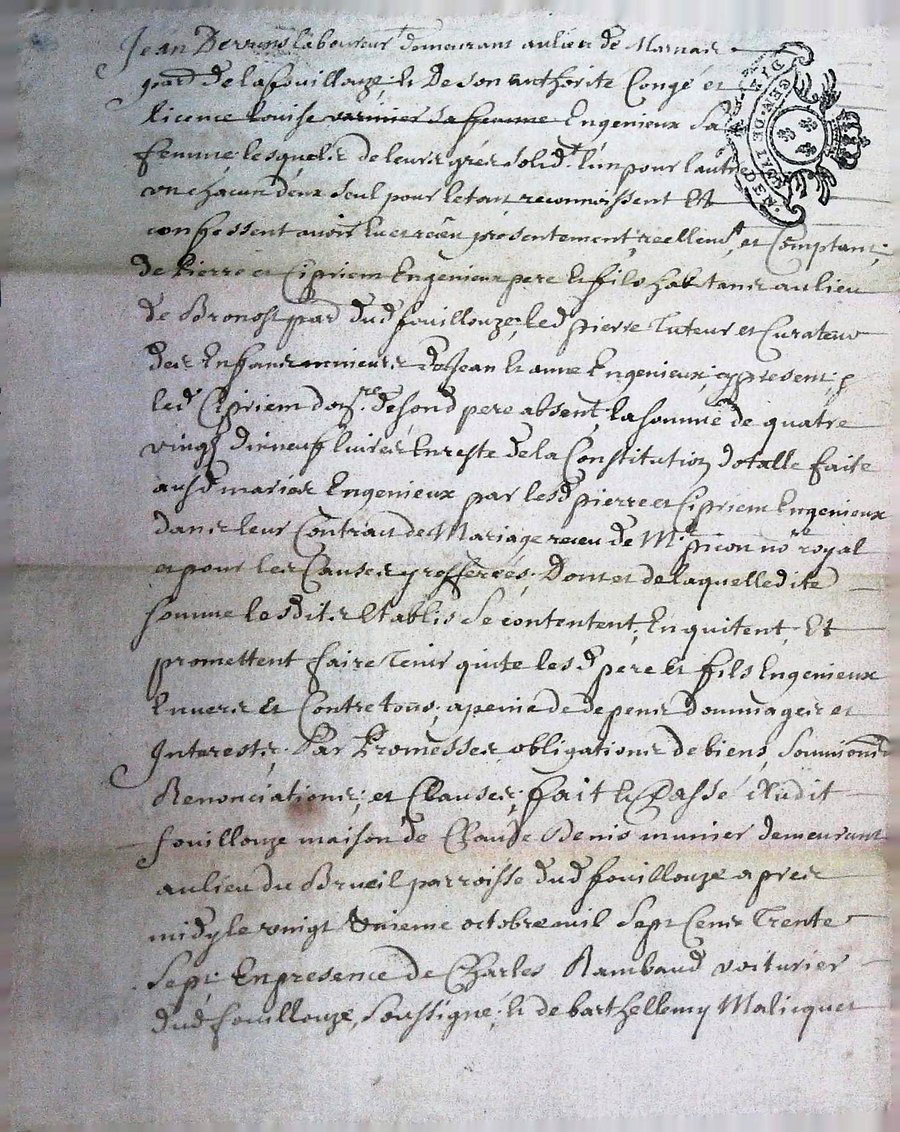 Jean laboureur demeurant au lieu de
parr de lafouillouze, et De son authorité Congé et
licence Louise sa femme Engenieux Sa
femme, lesquels de leurs grés solidt l'un pour l'autre
un chacun deux seul pour letout reconnoissent Et
confessent avoir Eu et reçeu presentement, reellemt, et Comptant,
de Pierre et Cipriem Engenieux pere et fils habitans au lieu
de parr dud fouillouze, led pierre Tuteur et Curateur
des Enfans mineurs de Jean et anne Engenieux, cy present,
led Cipriem de sond pere absent, la somme de quatre
vingt dixneuf livres Enreste de la Constitution dotalle faite
ausd mariés Engenieux par lesd pierre et Cipriem Engenieux
dans leur Contract de Mariage receu de Me picon nore royal
et pour les Causes y refferées, Dont et de laquelle dite
somme les dits Etablis Se contentent, En quitent, Et
promettent faire Tenir quite lesd pere et fils Engenieux
Envers et Contre tous, a peine de depens dommages et
Interests, Par Promesses, obligations de biens, Soumissions
Renonciations, et Clauses, fait et Passé Audit
fouillouze maison de Claude Denis munier demeurant
au lieu du Brueil parroisse dud fouillouze apres
midy le vingt unieme octobre mil Sept Cens Trente
Sept, En presence de Charles Rambaud voiturier
dud fouillouze, Soussigné, et de barthellemy Malicquet
GEN. DE